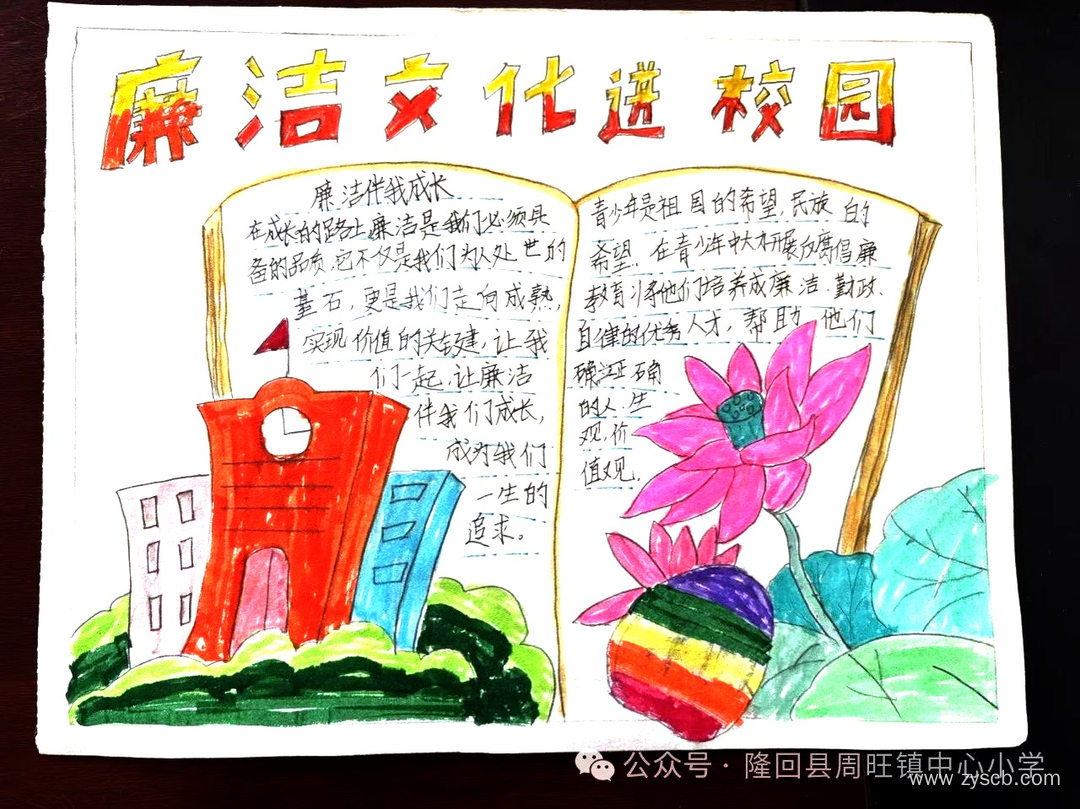 廉洁文化进校园
廉洁伴我成长
在成长的路上廉洁是我们必须具
备的品质,它不仅是我们为人处世的
基石,更是我们走向成熟,
实现价值的关键,让我
们一起,让廉洁
伴我们成长,
成为我们
一生的
追求。
青少年是祖国的希望,民族的
希望.在青少年中大力开展反腐倡廉
教育,将他们培养成廉洁.勤政.
自律的优秀人才,帮助他们
确证确
的人生
观,价
值观.
公众号·隆回县周旺镇中心小学
www.zyscb.com